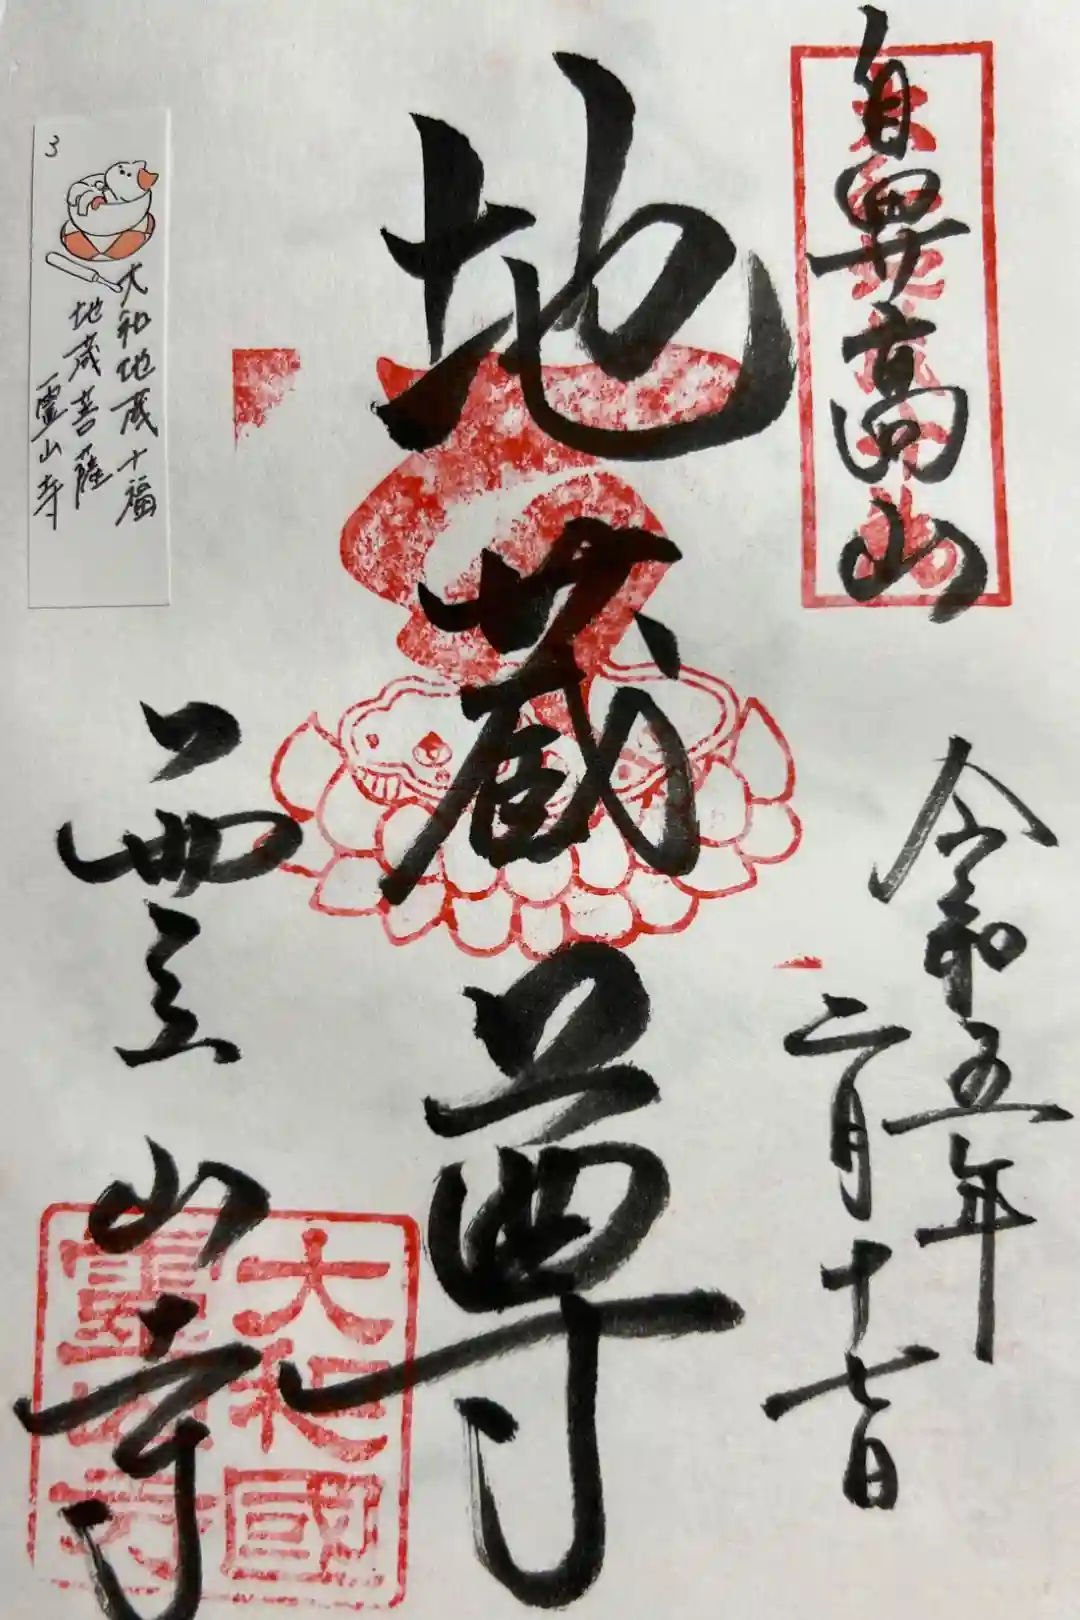 自鼻高山
令和五年
二月十七日
地蔵尊
霊山寺
大和國
霊山寺
3
大和地蔵十福
地蔵菩薩
霊山寺